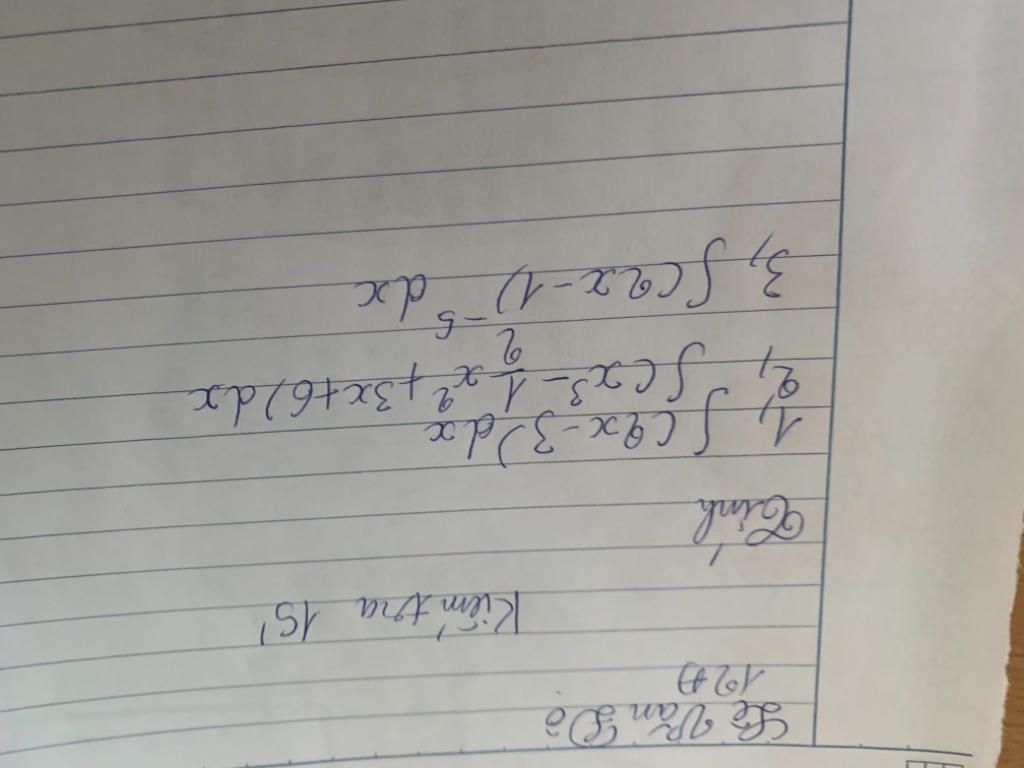 Lê Văn Đô
12A
Kiểm tra 15'
Tính
1, ∫(2x-3)dx
2, ∫(x³ - 1/2 x² + 3x+6)dx
3, ∫(2x-1)⁻⁵ dx